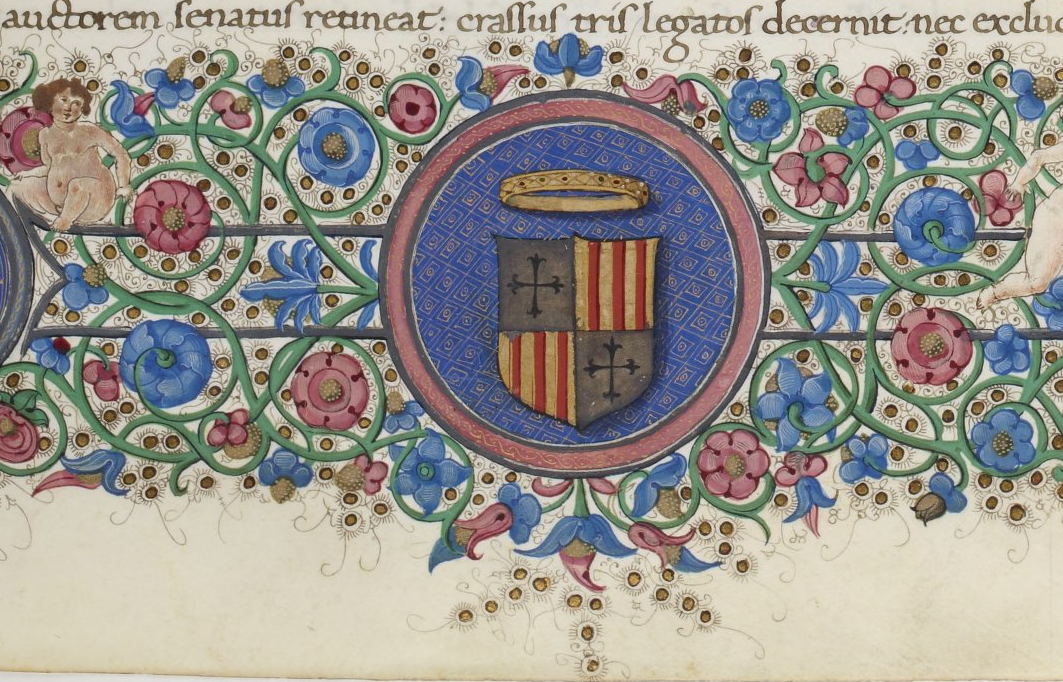 auctorem senatus retineat: crassus tris legatos decernit: nec exclu